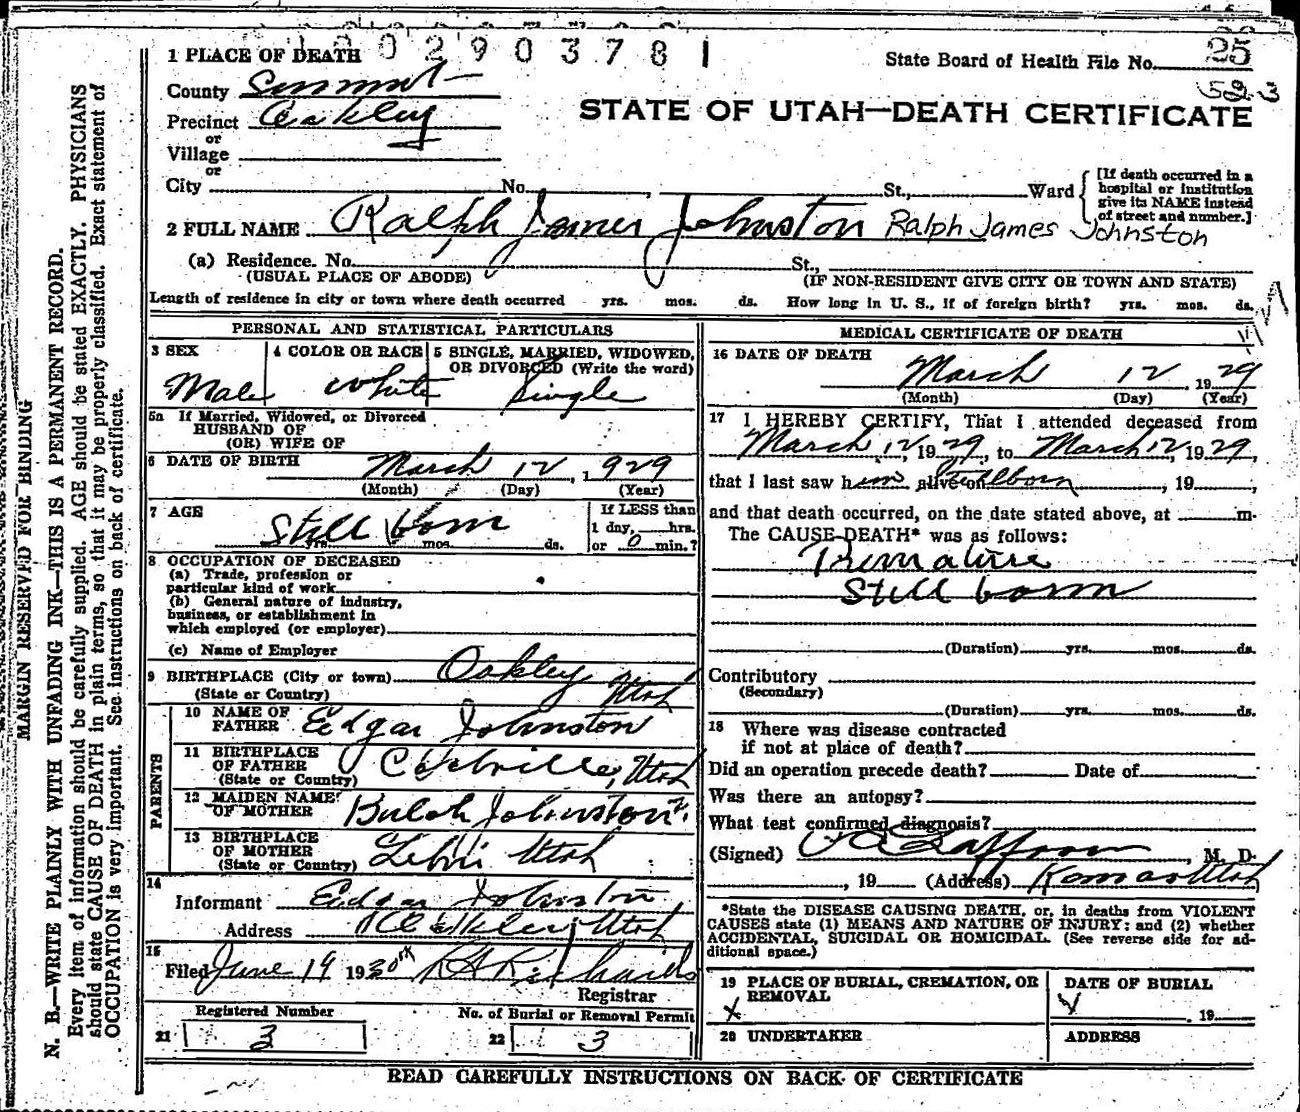 3029037 8 1
1 PLACE OF DEATH
State Board of Health File No. 25
County Summit
Precinct Oakley
STATE OF UTAH—DEATH CERTIFICATE
or
Village
or
City No. St., Ward
[If death occurred in a
hospital or institution
give its NAME instead
of street and number.]
2 FULL NAME Ralph James Johnston Ralph James Johnston
(a) Residence. No. St.,
(USUAL PLACE OF ABODE) (IF NON-RESIDENT GIVE CITY OR TOWN AND STATE)
Length of residence in city or town where death occurred yrs. mos. ds. How long in U. S., if of foreign birth? yrs. mos. ds.
PERSONAL AND STATISTICAL PARTICULARS
3 SEX 4 COLOR OR RACE 5 SINGLE, MARRIED, WIDOWED,
OR DIVORCED (Write the word)
Male White Single
5a If Married, Widowed, or Divorced
HUSBAND OF
(OR) WIFE OF
6 DATE OF BIRTH March 12, 1929
(Month) (Day) (Year)
7 AGE Still born
yrs. mos. ds.
If LESS than
1 day, hrs.
or 0 min.?
8 OCCUPATION OF DECEASED
(a) Trade, profession or
particular kind of work
(b) General nature of industry,
business, or establishment in
which employed (or employer)
(c) Name of Employer
9 BIRTHPLACE (City or town) Oakley
(State or Country) Utah
PARENTS
10 NAME OF
FATHER Edgar Johnston
11 BIRTHPLACE
OF FATHER Coalville, Utah
(State or Country)
12 MAIDEN NAME
OF MOTHER Bulah Johnston
13 BIRTHPLACE
OF MOTHER Lehi Utah
(State or Country)
14
Informant Edgar Johnston
Address Oakley Utah
15
Filed June 19 1930 Richards
Registrar
Registered Number No. of Burial or Removal Permit
21 3 22 3
MEDICAL CERTIFICATE OF DEATH
16 DATE OF DEATH
March 12, 1929
(Month) (Day) (Year)
17 I HEREBY CERTIFY, That I attended deceased from
March 12, 1929, to March 12, 1929,
that I last saw him alive on Stillborn, 19,
and that death occurred, on the date stated above, at m.
The CAUSE DEATH* was as follows:
Premature
Still born
(Duration) yrs. mos. ds.
Contributory
(Secondary)
(Duration) yrs. mos. ds.
18 Where was disease contracted
if not at place of death?
Did an operation precede death? Date of
Was there an autopsy?
What test confirmed diagnosis?
(Signed) , M. D.
, 19 (Address) Kamas Utah
*State the DISEASE CAUSING DEATH, or, in deaths from VIOLENT
CAUSES state (1) MEANS AND NATURE OF INJURY: and (2) whether
ACCIDENTAL, SUICIDAL OR HOMICIDAL. (See reverse side for ad-
ditional space.)
19 PLACE OF BURIAL, CREMATION, OR
REMOVAL
x
DATE OF BURIAL
, 19
20 UNDERTAKER ADDRESS
READ CAREFULLY INSTRUCTIONS ON BACK OF CERTIFICATE
MARGIN RESERVED FOR BINDING
N. B.—WRITE PLAINLY WITH UNFADING INK—THIS IS A PERMANENT RECORD.
Every item of information should be carefully supplied. AGE should be stated EXACTLY. PHYSICIANS
should state CAUSE OF DEATH in plain terms, so that it may be properly classified. Exact statement of
OCCUPATION is very important. See instructions on back of certificate.